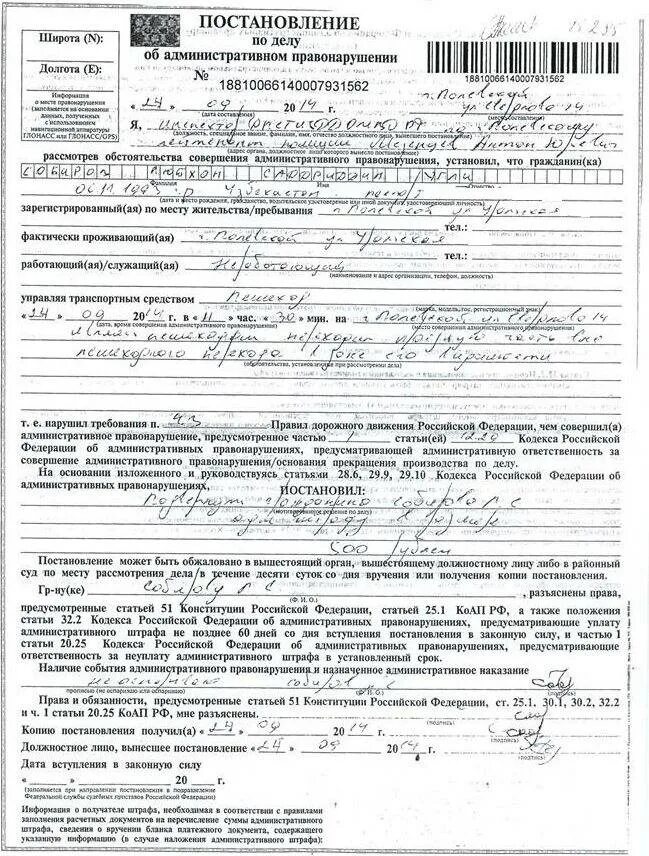 Широта (N):
Долгота (E):
Информация
о месте правонарушения
(заполняется на основании
данных, полученных
с использованием
навигационной аппаратуры
ГЛОНАСС или ГЛОНАСС/GPS)
ПОСТАНОВЛЕНИЕ
по делу
об административном правонарушении
№ 18810066140007931562
18810066140007931562
г. Полевской
« 24 » 09 2014 г. ул Свердлова 14
(дата составления) (место составления)
Я, инспектор ДПС по Полевскому
(должность, специальное звание, фамилия, имя, отчество должностного лица, вынесшего постановление)
лейтенант полиции Антон Юрьевич
(адрес органа, должностное лицо которого вынесло постановление)
рассмотрев обстоятельства совершения административного правонарушения, установил, что гражданин(ка)
СОБИРОВ САДРИДДИН УГЛИ
Фамилия Имя Отчество
06.11.1993 г.р Узбекистан паспорт
(дата и место рождения, гражданство, водительское удостоверение или иной документ, удостоверяющий личность)
зарегистрированный(ая) по месту жительства/пребывания г. Полевской ул Уральская
тел.:
фактически проживающий(ая) г. Полевской ул Уральская
тел.:
работающий(ая)/служащий(ая) Неработающий
(наименование и адрес организации, телефон, должность)
управляя транспортным средством Пешеход
(марка, модель, гос. регистрационный знак)
« 24 » 09 2014 г. в « 11 » час. « 30 » мин. на г. Полевской ул Свердлова 14
(дата, время совершения административного правонарушения) (место совершения административного правонарушения)
являясь пешеходом переходил проезжую часть вне
пешеходного перехода в зоне его видимости
(обстоятельства, установленные при рассмотрении дела)
т. е. нарушил требования п. 4.3 Правил дорожного движения Российской Федерации, чем совершил(а)
административное правонарушение, предусмотренное частью 1 статьи(ей) 12.29 Кодекса Российской
Федерации об административных правонарушениях, предусматривающей административную ответственность за
совершение административного правонарушения/основания прекращения производства по делу.
На основании изложенного и руководствуясь статьями 28.6, 29.9, 29.10 Кодекса Российской Федерации об
административных правонарушениях,
ПОСТАНОВИЛ:
Подвергнуть гражданина Собирова Л С
(мотивированное решение по делу)
адм штрафу в размере
500 рублей
Постановление может быть обжаловано в вышестоящий орган, вышестоящему должностному лицу либо в районный
суд по месту рассмотрения дела в течение десяти суток со дня вручения или получения копии постановления.
Гр-ну(ке) Собирову Л С , разъяснены права,
(Ф. И. О.)
предусмотренные статьей 51 Конституции Российской Федерации, статьей 25.1 КоАП РФ, а также положения
статьи 32.2 Кодекса Российской Федерации об административных правонарушениях, предусматривающие уплату
административного штрафа не позднее 60 дней со дня вступления постановления в законную силу, и части 1
статьи 20.25 Кодекса Российской Федерации об административных правонарушениях, предусматривающей
ответственность за неуплату административного штрафа в установленный срок.
Наличие события административного правонарушения и назначенное административное наказание
не оспариваю Собиров Л С
прописью (не оспариваю или оспариваю) (Ф. И. О.) (подпись)
Права и обязанности, предусмотренные статьей 51 Конституции Российской Федерации, ст. 25.1, 30.1, 30.2, 32.2
и ч. 1 статьи 20.25 КоАП РФ, мне разъяснены.
(подпись)
Копию постановления получил(а) « 24 » 09 2014 г.
(подпись)
Должностное лицо, вынесшее постановление « 24 » 09 2014 г.
(подпись)
Дата вступления в законную силу
« » 20 г.
(заполняется при направлении постановления в подразделение
Федеральной службы судебных приставов Российской Федерации)
Информация о получателе штрафа, необходимая в соответствии с правилами
заполнения расчетных документов на перечисление суммы административного
штрафа, сведения о вручении бланка платежного документа, содержащего
указанную информацию (в случае наложения административного штрафа):